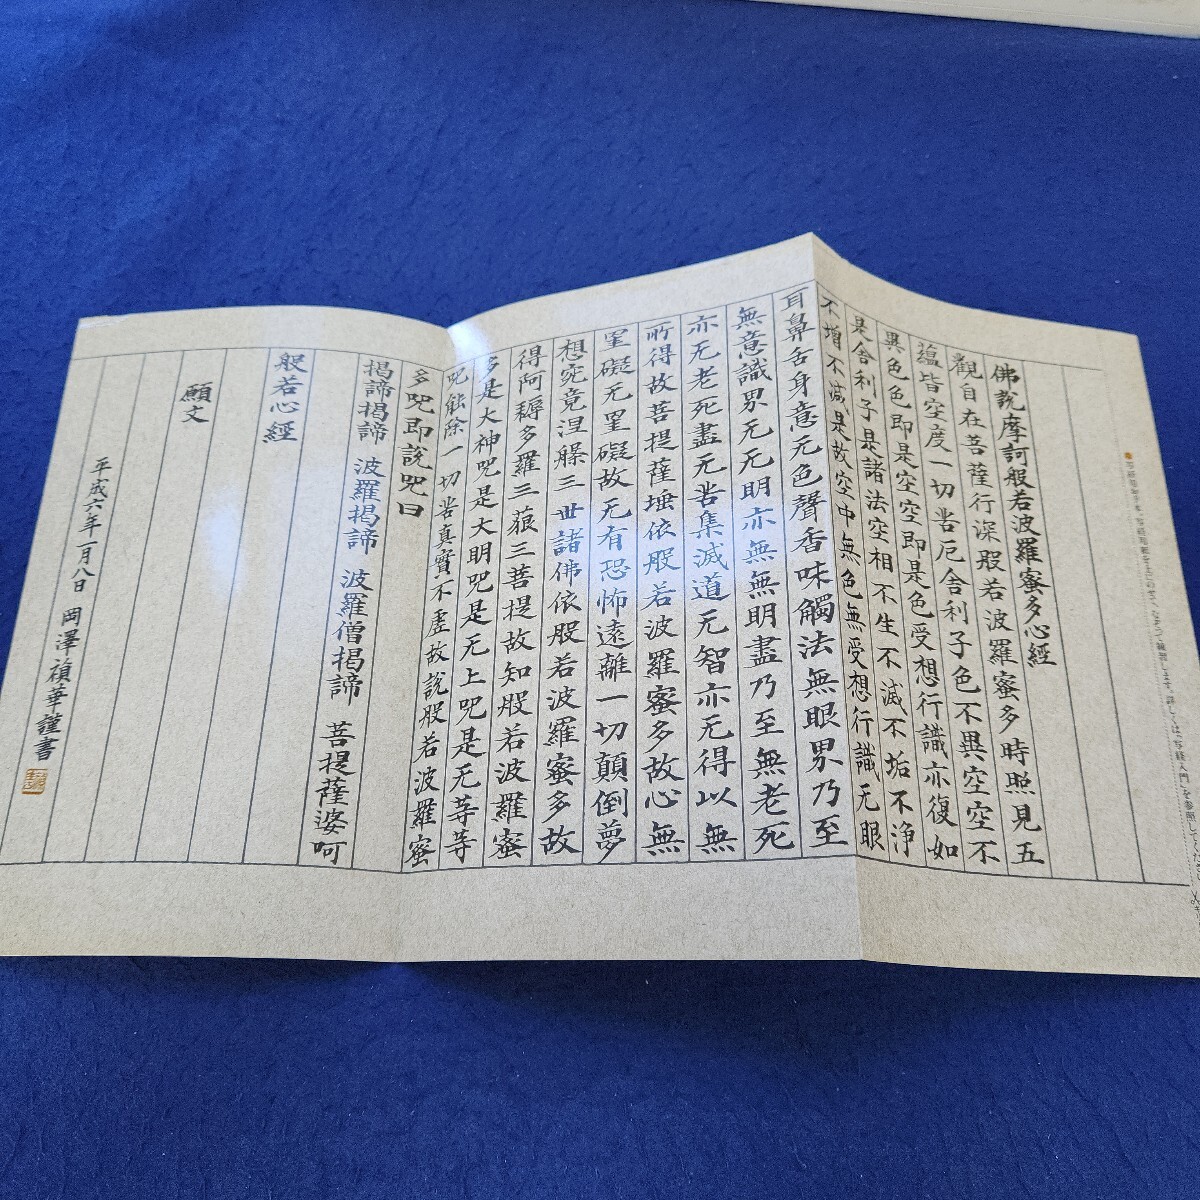 ●写経用お手本・写経用紙を上にのせて、なぞって練習します。詳しくは、「写経入門」を参照してください。
佛説摩訶般若波羅蜜多心經
觀自在菩薩行深般若波羅蜜多時照見五
蘊皆空度一切苦厄舎利子色不異空空不
異色色即是空空即是色受想行識亦復如
是舎利子是諸法空相不生不滅不垢不浄
不増不減是故空中無色無受想行識无眼
耳鼻舌身意无色聲香味觸法無眼界乃至
無意識界无无明亦無無明盡乃至無老死
亦无老死盡无苦集滅道无智亦无得以無
所得故菩提薩埵依般若波羅蜜多故心無
罣礙无罣礙故无有恐怖遠離一切顛倒夢
想究竟涅槃三世諸佛依般若波羅蜜多故
得阿耨多羅三藐三菩提故知般若波羅蜜
多是大神呪是大明呪是无上呪是无等等
呪能除一切苦真實不虚故説般若波羅蜜
多呪即説呪曰
揭諦揭諦 波羅揭諦 波羅僧揭諦 菩提薩婆呵
般若心經
願文
平成六年一月八日 岡澤禎華謹書